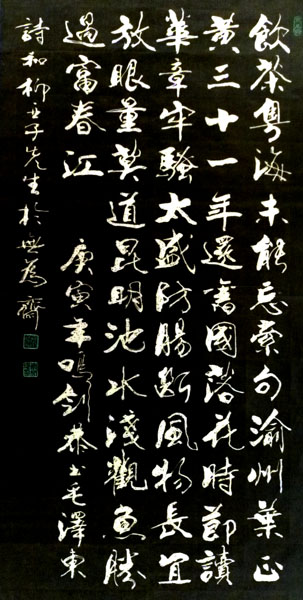 飲茶粵海未能忘索句渝州葉正
黃三十一年還舊國落花時節讀
華章牢騷太盛防腸斷風物長宜
放眼量莫道昆明池水淺觀魚勝
過富春江 庚寅年鳴劍恭书毛澤東
詩和柳亞子先生於無為齋